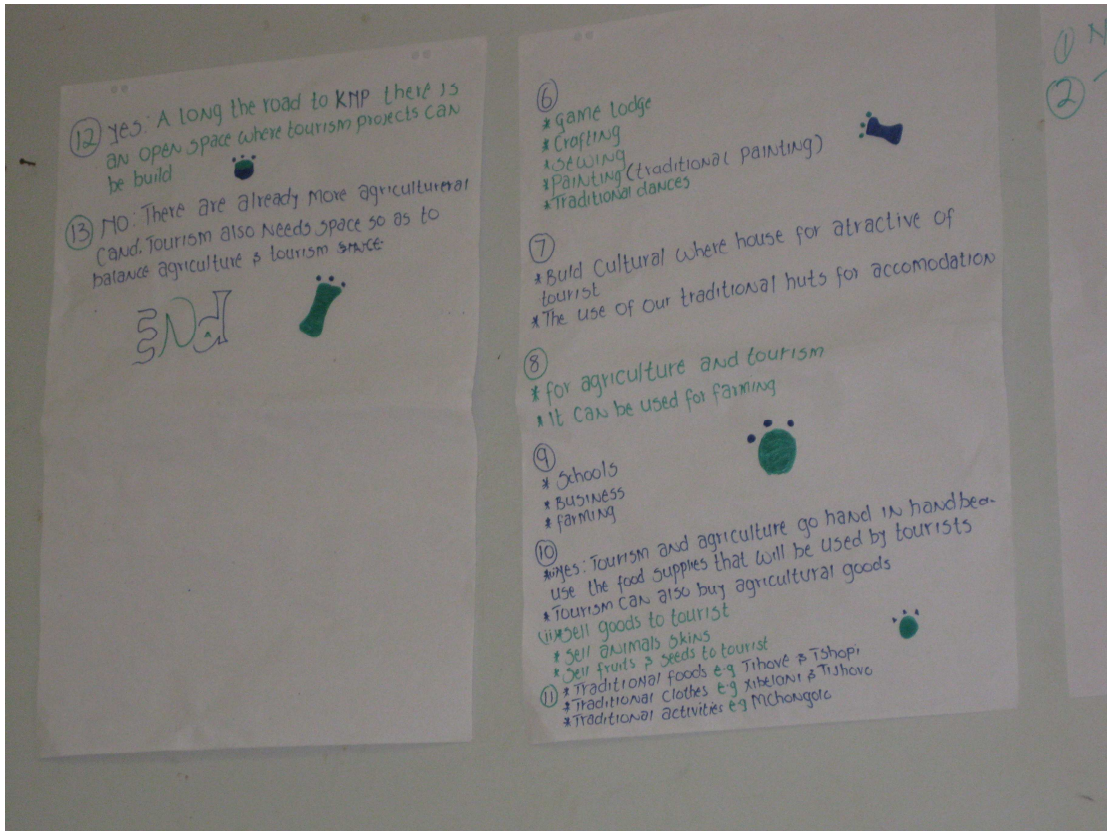 12 yes: A long the road to KNP there is
an open space where tourism projects can
be build
13 NO: There are already more agricultureral
Land. Tourism also Needs space so as to
balance agriculture & tourism space.
END
6
* game lodge
* Crafting
* sewing
* Painting (traditional painting)
* Traditional dances
7
* Buld Cultural where house for atractive of
tourist
* The use of our traditional huts for accomodation
8
* for agriculture and tourism
* it can be used for farming
9
* Schools
* Business
* farming
10
* (i) Yes: Tourism and agriculture go hand in hand bea-
use the food supplies that will be used by tourists
* Tourism can also buy agricultural goods
(ii) * Sell goods to tourist
* Sell animals skins
* Sell fruits & seeds to tourist
11 * Traditional foods e.g Tihove & Tshopi
* Traditional clothes e.g xibelani & Tishovo
* Traditional activities e.g Mchongolo
1 N
2